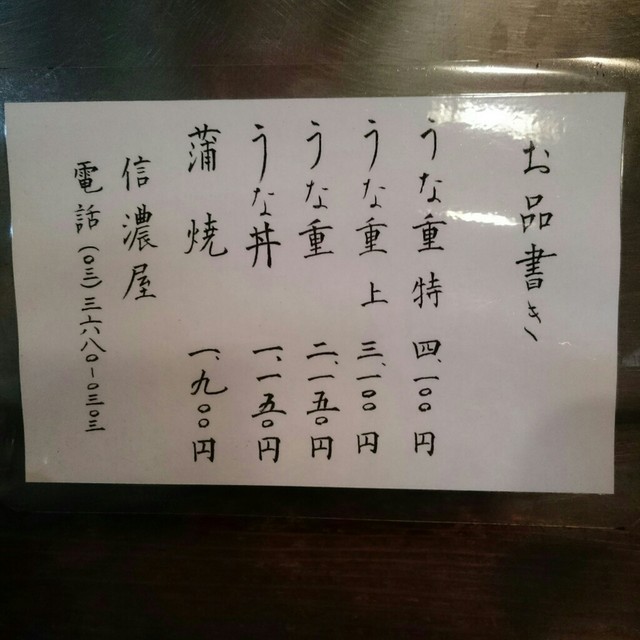 お品書き
うな重特 四、一〇〇円
うな重上 三、一〇〇円
うな重 二、一五〇円
うな丼 一、一五〇円
蒲焼 一、九〇〇円
信濃屋
電話(〇三)三六八〇-〇三〇三